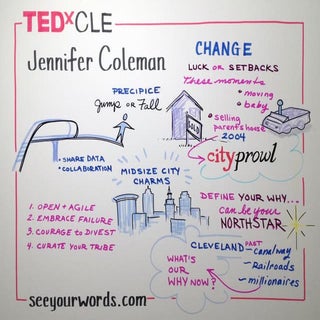 TEDxCLE
Jennifer Coleman
CHANGE
LUCK OR SETBACKS
These moments
• moving
• baby
• selling
parents house
2004
SOLD
cityprowl
PRECIPICE
Jump OR Fall
• SHARE DATA
• COLLABORATION
MIDSIZE CITY
CHARMS
1. OPEN + AGILE
2. EMBRACE FAILURE
3. COURAGE to DIVEST
4. CURATE YOUR TRIBE
DEFINE YOUR WHY...
can be your
NORTHSTAR
CLEVELAND PAST
- canalway
- Railroads
- millionaires
WHAT'S
OUR
WHY NOW?
seeyourwords.com